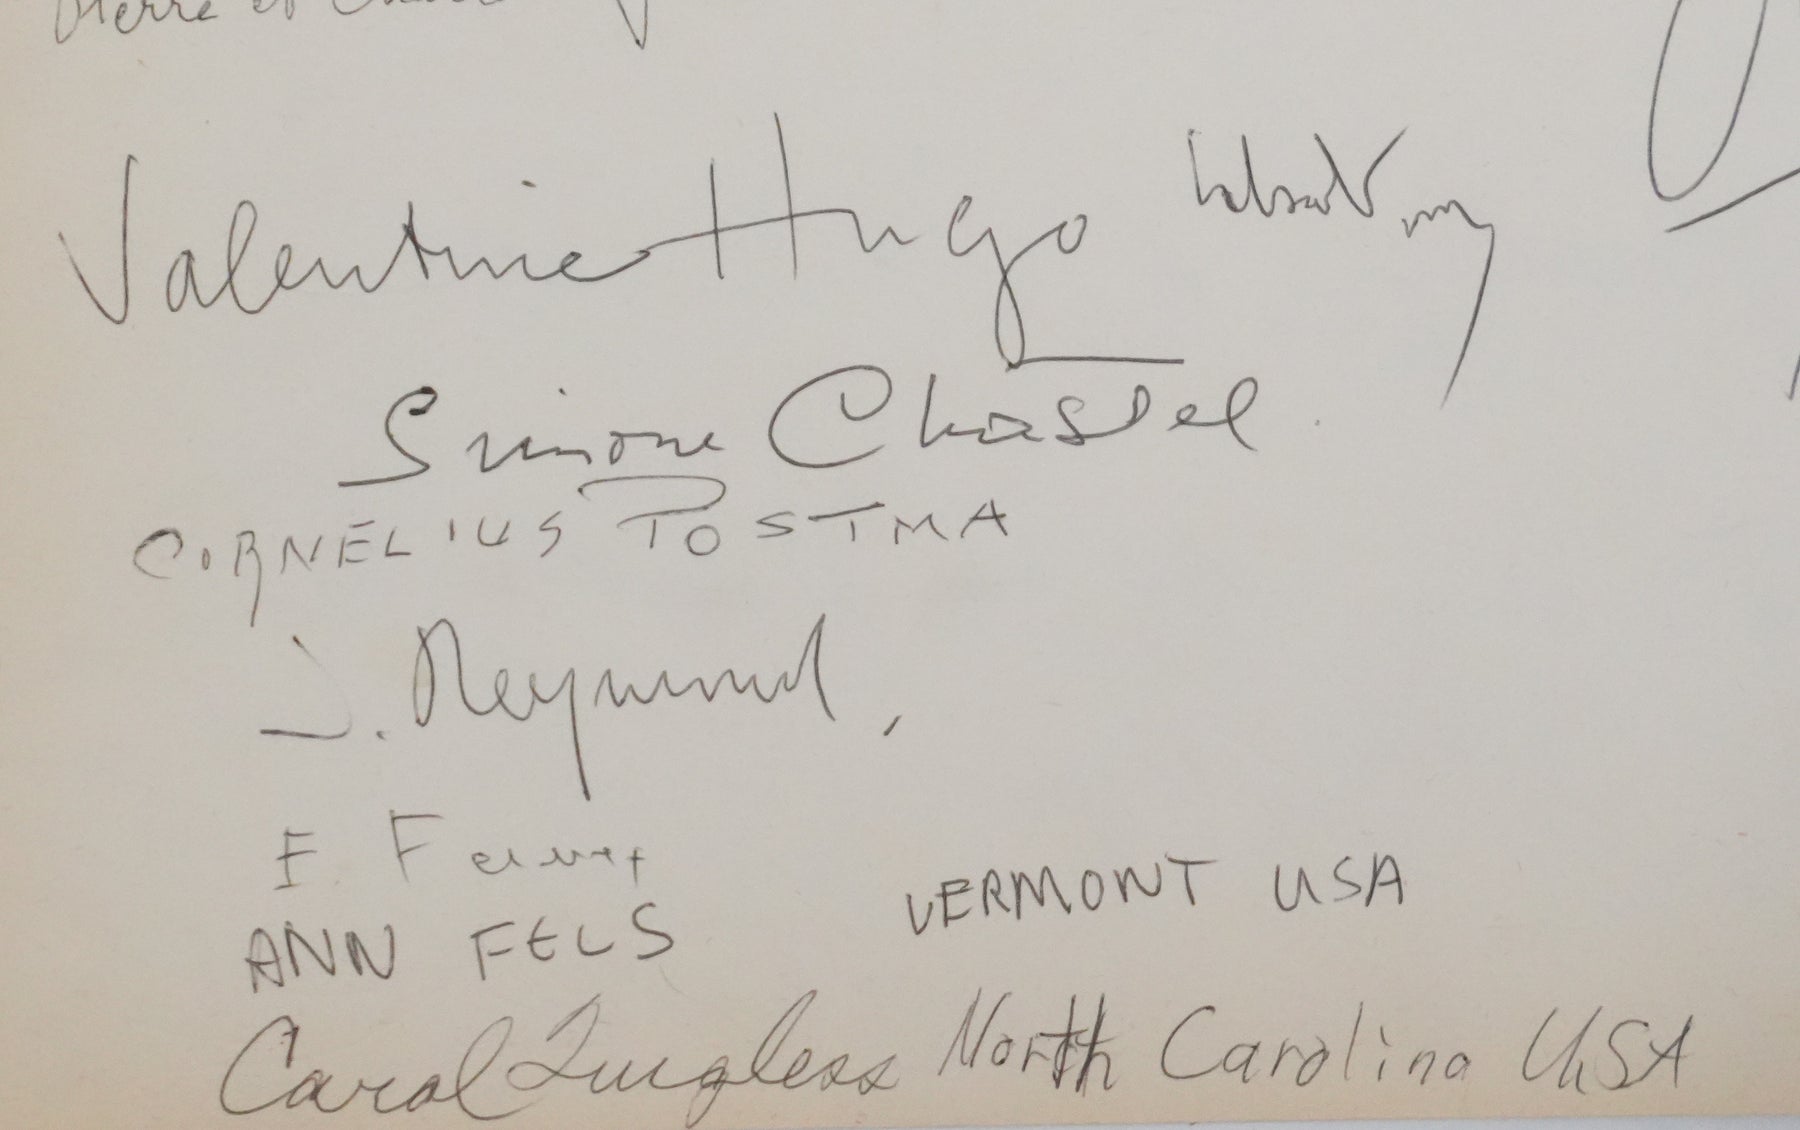 Pierre et
Valentine Hugo
Simone Chastel.
CORNELIUS POSTMA
J. Reymond,
F.
ANN FELS VERMONT USA
Carol North Carolina USA